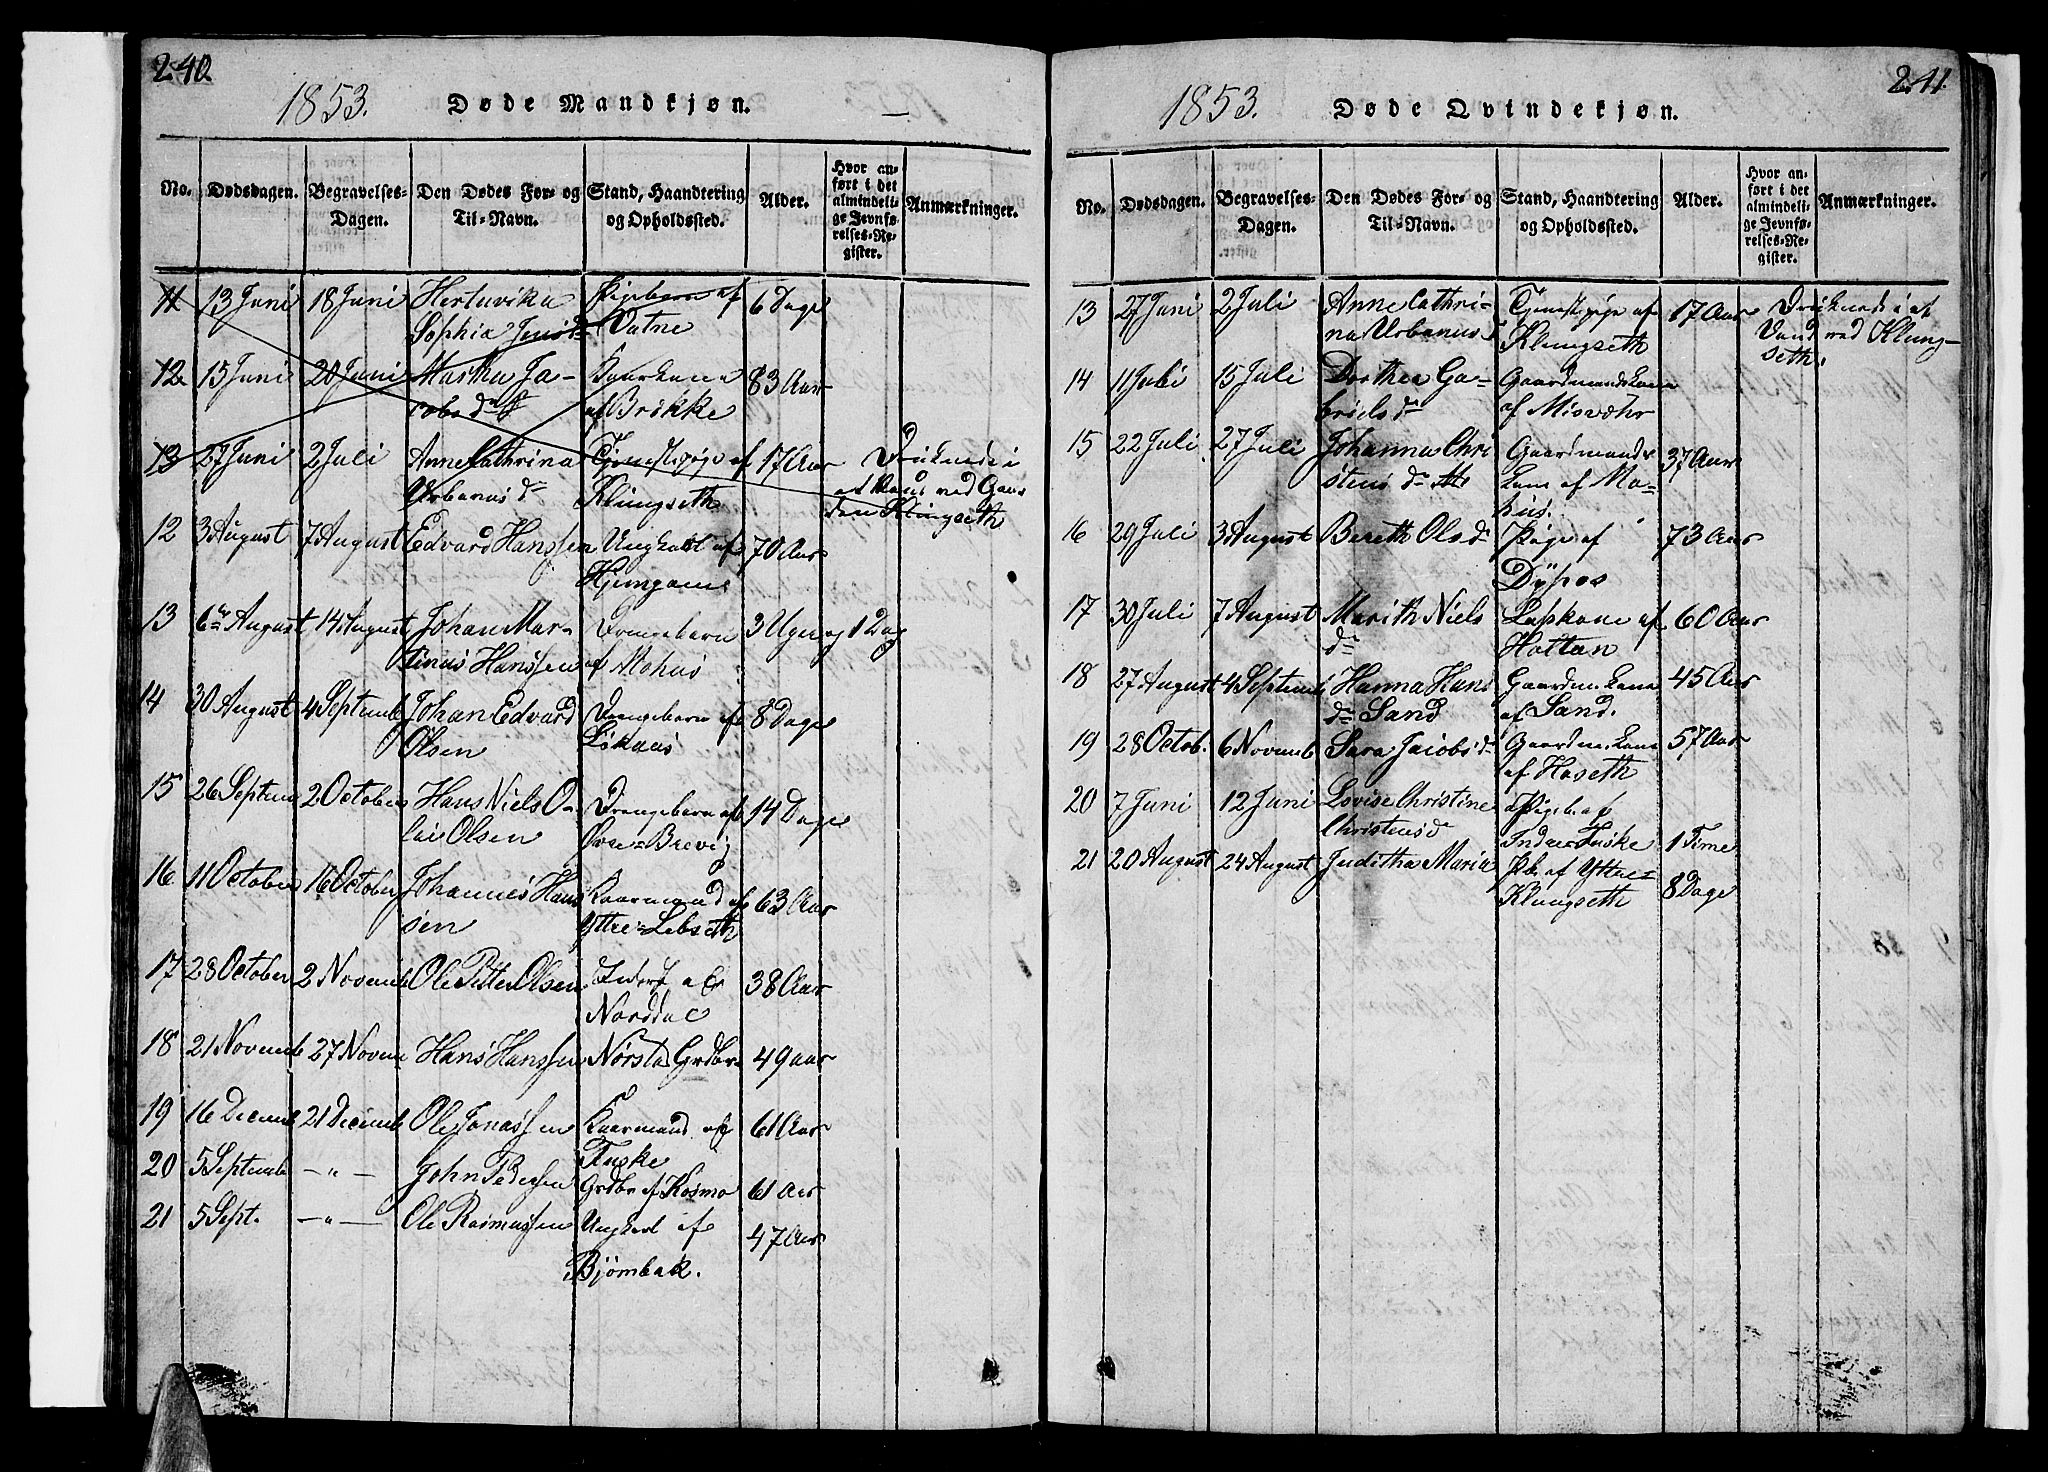 240
1853. Døde Mandkjøn.
No. Dødsdagen. Begravelses-Dagen. Den Dødes For- og Til-Navn. Stand, Haandtering og Opholdssted. Alder. Hvor anført i det almindelige Jevnførelses-Register. Anmærkninger.
11 13 Juni 18 Juni Hertuvika Pigebarn af 6 Dage
Sophia Jensd Vatne
12 15 Juni 20 Juni Martha Ja- Kaarkone 83 Aar
cobsd af Brøkke
13 27 Juni 2 Juli Anne Cathrina Tjenestpige af 17 Aar Druknede i
Urbanusd Klungseth et Vand ved Gaar
den Klungseth
12 3 August 7 August Edvard Hanssen Ungkarl af 70 Aar
Kjungam
13 6te August 14 August Johan Mar- Drengebarn 3 Uger og 1 Dag
tinus Hanssen af Mohus
14 30 August 4 Septemb Johan Edvard Drengebarn af 8 Dage
Olsen Løkaas
15 26 Septem 2 October Hans Niels O- Drengebarn af 14 Dage
lai Olsen Øvre-Brevig
16 11 October 16 October Johannes Hans Kaarmand af 63 Aar
sen Yttre-Lebseth
17 28 October 2 Novemb Ole Petter Olsen Inderst 38 Aar
Norddal
18 21 Novemb 27 Novem Hans Hanssen Nørsta Grdbr 49 aar
19 16 Decemb 21 Decemb Ole Jonassen Kaarmand af 61 Aar
Fuske
20 5 Septemb — " — John Pedersen Grdbr af Kosmo 61 Aar
21 5 Sept. — " — Ole Rasmussen Ungkarl af 47 Aar
Bjørnbak.
241.
1853. Døde Qvindekjøn.
No. Dødsdagen. Begravelses-Dagen. Den Dødes For- og Til-Navn. Stand, Haandtering og Opholdssted. Alder. Hvor anført i det almindelige Jevnførelses-Register. Anmærkninger.
13 27 Juni 2 Juli Anne Cathri- Tjenestpige af 17 Aar Druknede i et
na Urbanusd Klungseth Vand ved Klung-
seth.
14 11 Juli 15 Juli Dorthea Ga- Gaardmandskone
brielsdr af Misvæhr
15 22 Juli 27 Juli Johanna Chri Gaardmands 37 Aar
stensdr kone af Mo-
hus.
16 29 Juli 3 August Bereth Olsd Pige af 73 Aar
Dypos
17 30 Juli 7 August Marith Niels Lapkone af 60 Aar
dr Hattan
18 27 August 4 Septemb Hanna Hans Gaardm. kone 45 Aar
dr Sand af Sand.
19 28 Octob. 6 Novemb Sara Jacobsdr Gaardm. kone 57 Aar
af Hoseth
20 7 Juni 12 Juni Lovise Christine Pigeb. af
Christensd Indre Fuske 1 Time
21 20 August 24 August Juditha Maria Pb. af Yttre-
Klungseth 8 Dage